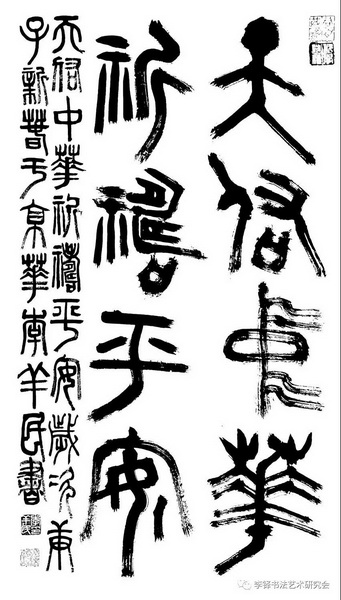 天佑中華
祈禱平安
天佑中華祈禱平安歲次庚
子新春于京華李羊民書
李鐸书法艺术研究会